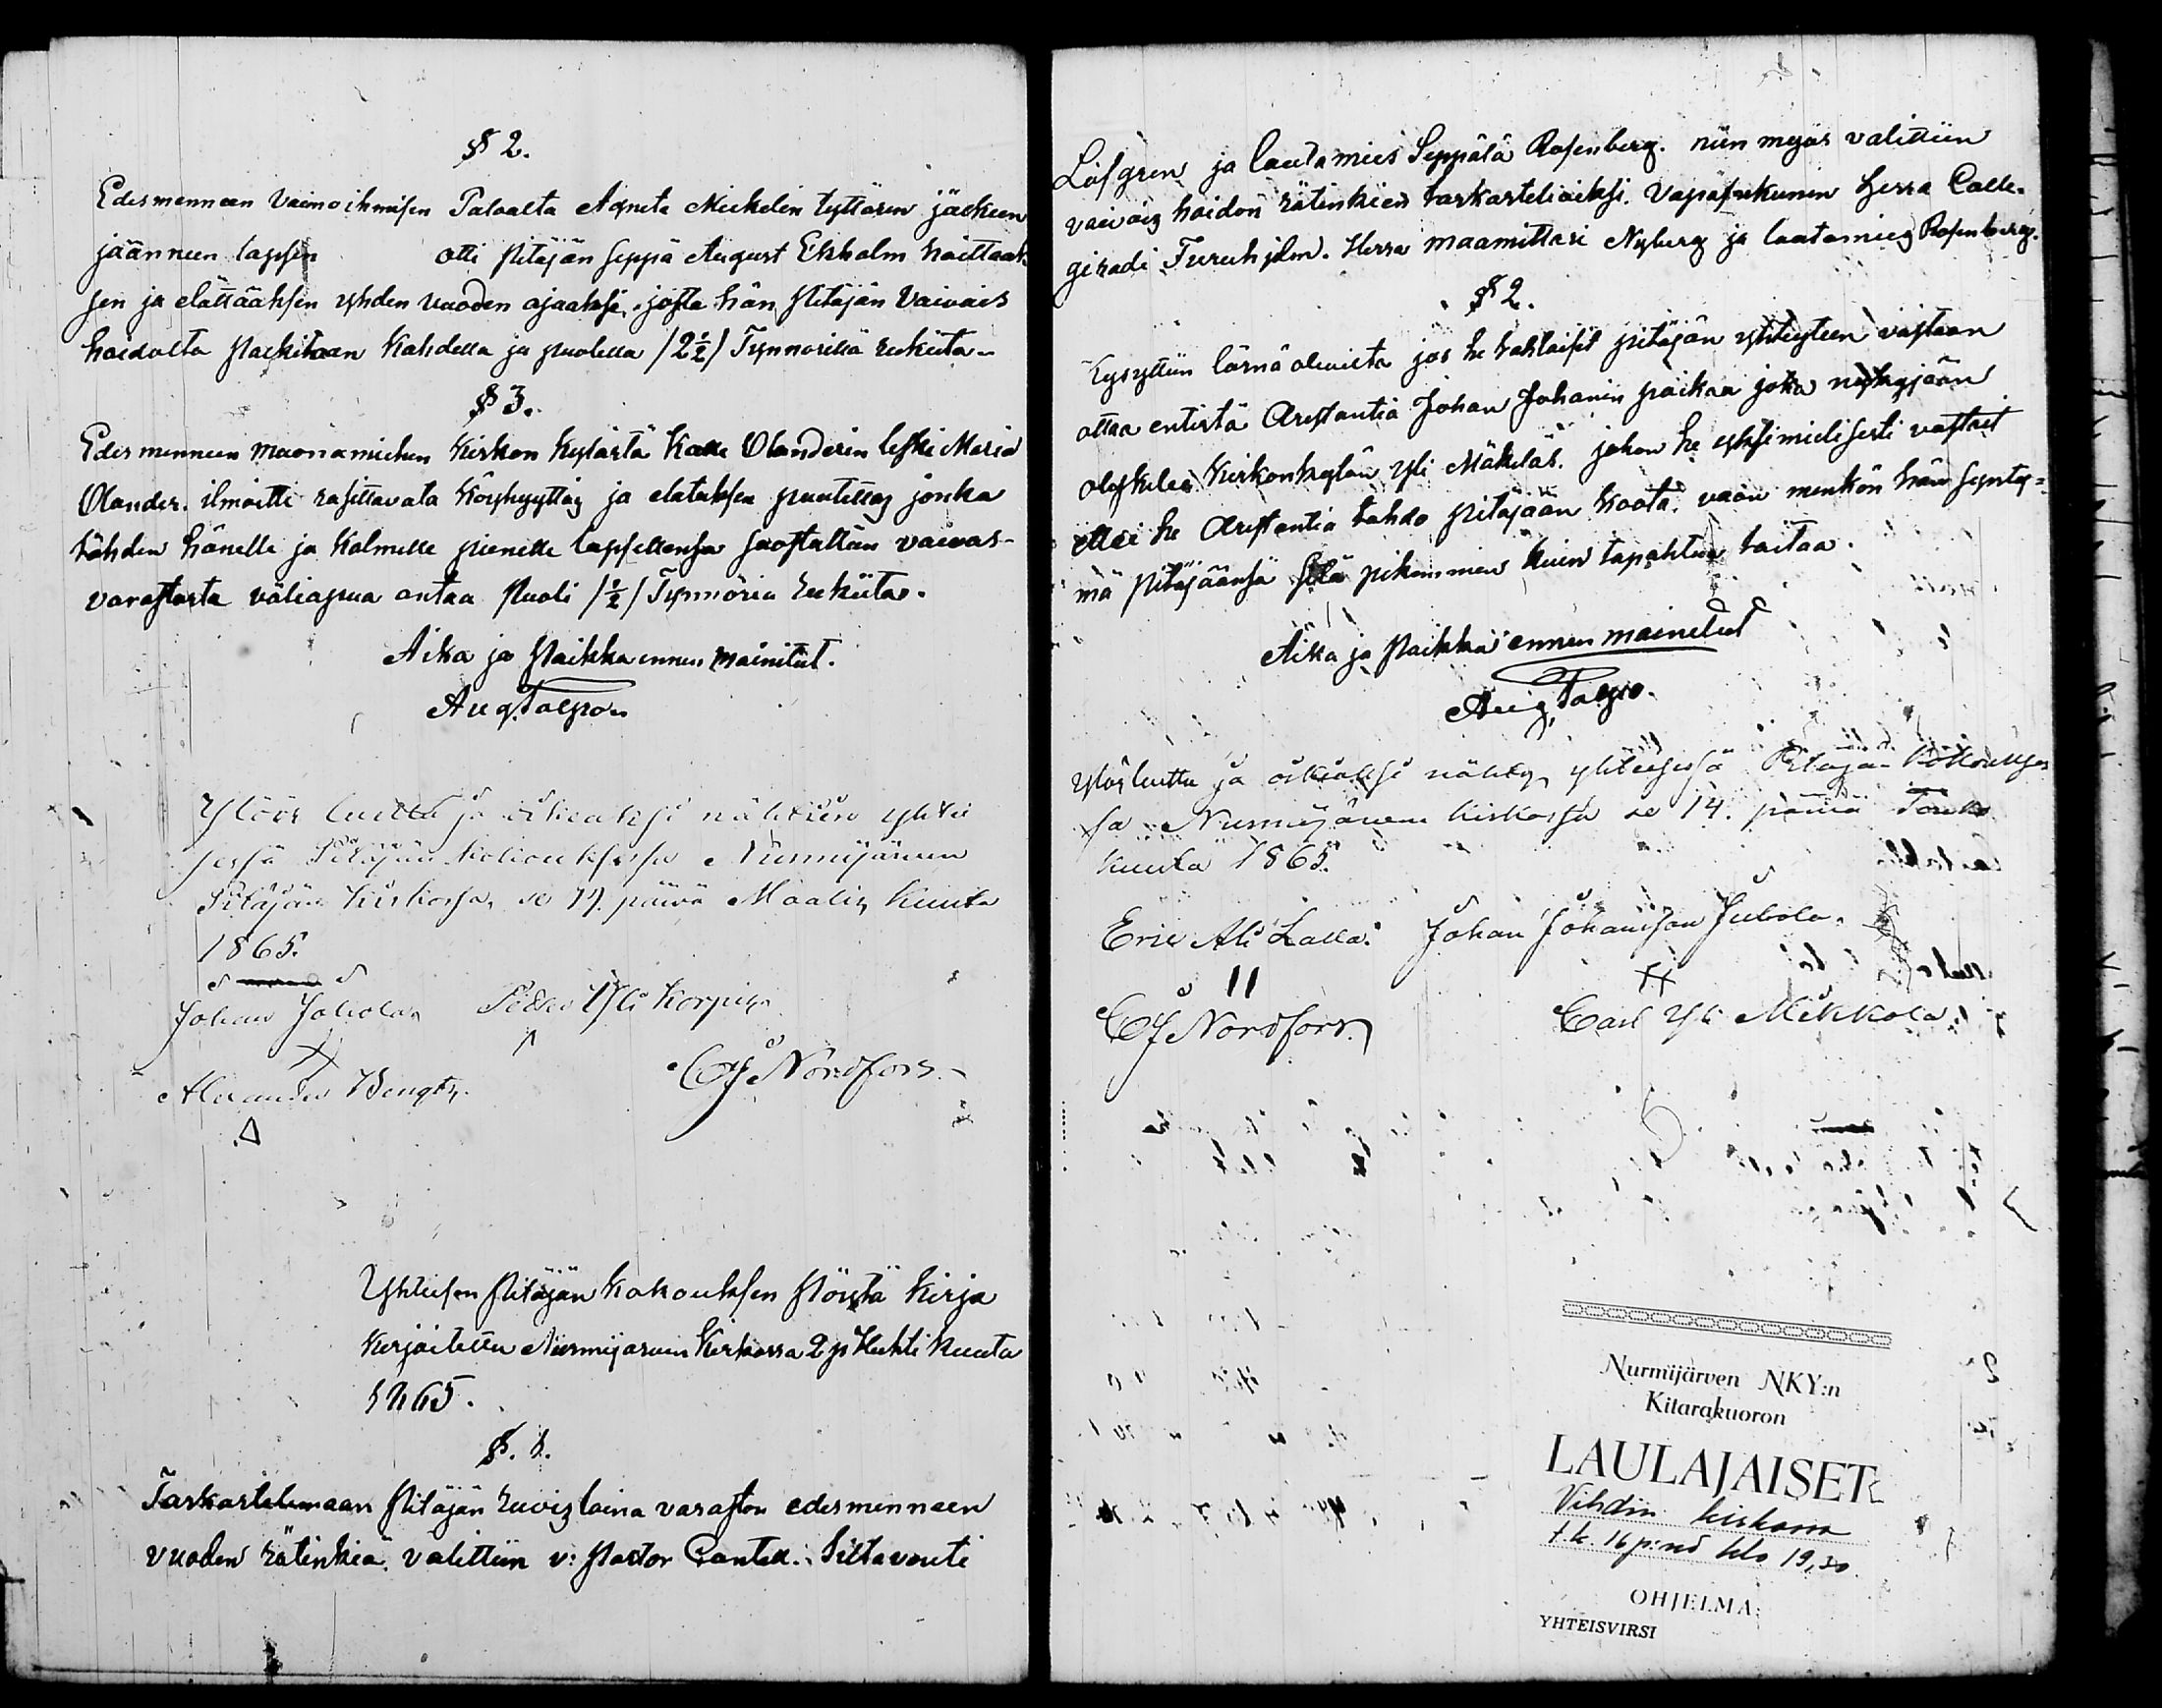 § 2.
Edesmenneen Vaimoihmisen Palaalta Agneta Mickelin tyttären jäckeen
jäänneen lapsen otti Pitäjän seppä August Ekholm hoittaak
sen ja elättääksen yhden vuoden ajaaksi, josta hän Pitäjän Vaivais
hoidolta Palkitaan Kahdella ja puolella /2½/ Tynnörillä rukiita.
§ 3.
Edesmenneen muonamiehen Kirkon kylästä Kalle Olanderin leski Maria
Olander. ilmoitti rasittavata Köyhyyttä ja elatuksen puutetta jonka
tähden hänelle ja Kolmelle pienelle lapsellensa suostuttan vaivas-
varastosta väliapua antaa Puoli /½/ Tynnöriä rukiita.
Aika ja Paikka ennen mainitut.
Aug. Talpo.
Ylöös luettu ja oikeaksi nähtiin yhtei
sessä Pitäjän kokouksessa Nurmijärven
Pitäjän kirkossa, se 19. päivä Maalis kuuta
1865.
Johan Jobola, Yli Korpi
Alexander Bengts.
CJ Nordfors.
Yhteisen Pitäjän Kokouksen Pöytä Kirja
Kirjoitettu Nurmijärven Kirkossa 2 p Huhti Kuuta
1865.
§. 1.
Tarkastelemaan Pitäjän ruvis laina varaston edesmenneen
vuoden rätinkiä. valittiin v: Pastor Siltavouti
Löfgren ja lautamies Seppälä Rosenberg. niin myös valittiin
vaivais hoidon rätinkien tarkasteliaiksi. Vapasukunin herra Colle-
giradi Furuhjelm. Herra maamittari Nyberg ja lautamies Rosenberg.
§ 2.
Kysyttiin läsnä olevilta jos he tahtoisit pitäjän yhteyteen vastaan
ottaa entistä Arestantia Johan Johanin poikaa joka nykyjään
olyskelee Kirkonkylän Yli Mäkeläs. johon he yksimielisesti vastait
ettei he Arestantia tahdo Pitäjään koota. vaan menkön hän synty=
mä Pitäjäänsä sitä pikemmin kuin tapahtua taitaa.
Aika ja Paikka ennen mainitut
Aug. Talpo.
Ylös luettu ja oikiaksi nähty, yhteisessä Pitäjän Kokoukses
sa Nurmijärven kirkossa se 14. päivä Touko
kuuta 1865.
Eric Ali Lalla. Johan Johansson Jubola.
CJ Nordfors. Carl Yli Mikkola.
Nurmijärven NKY:n
Kitarakuoron
LAULAJAISET
Vihdin kirkossa
t.k. 16 p:nä klo 19,30
OHJELMA:
YHTEISVIRSI